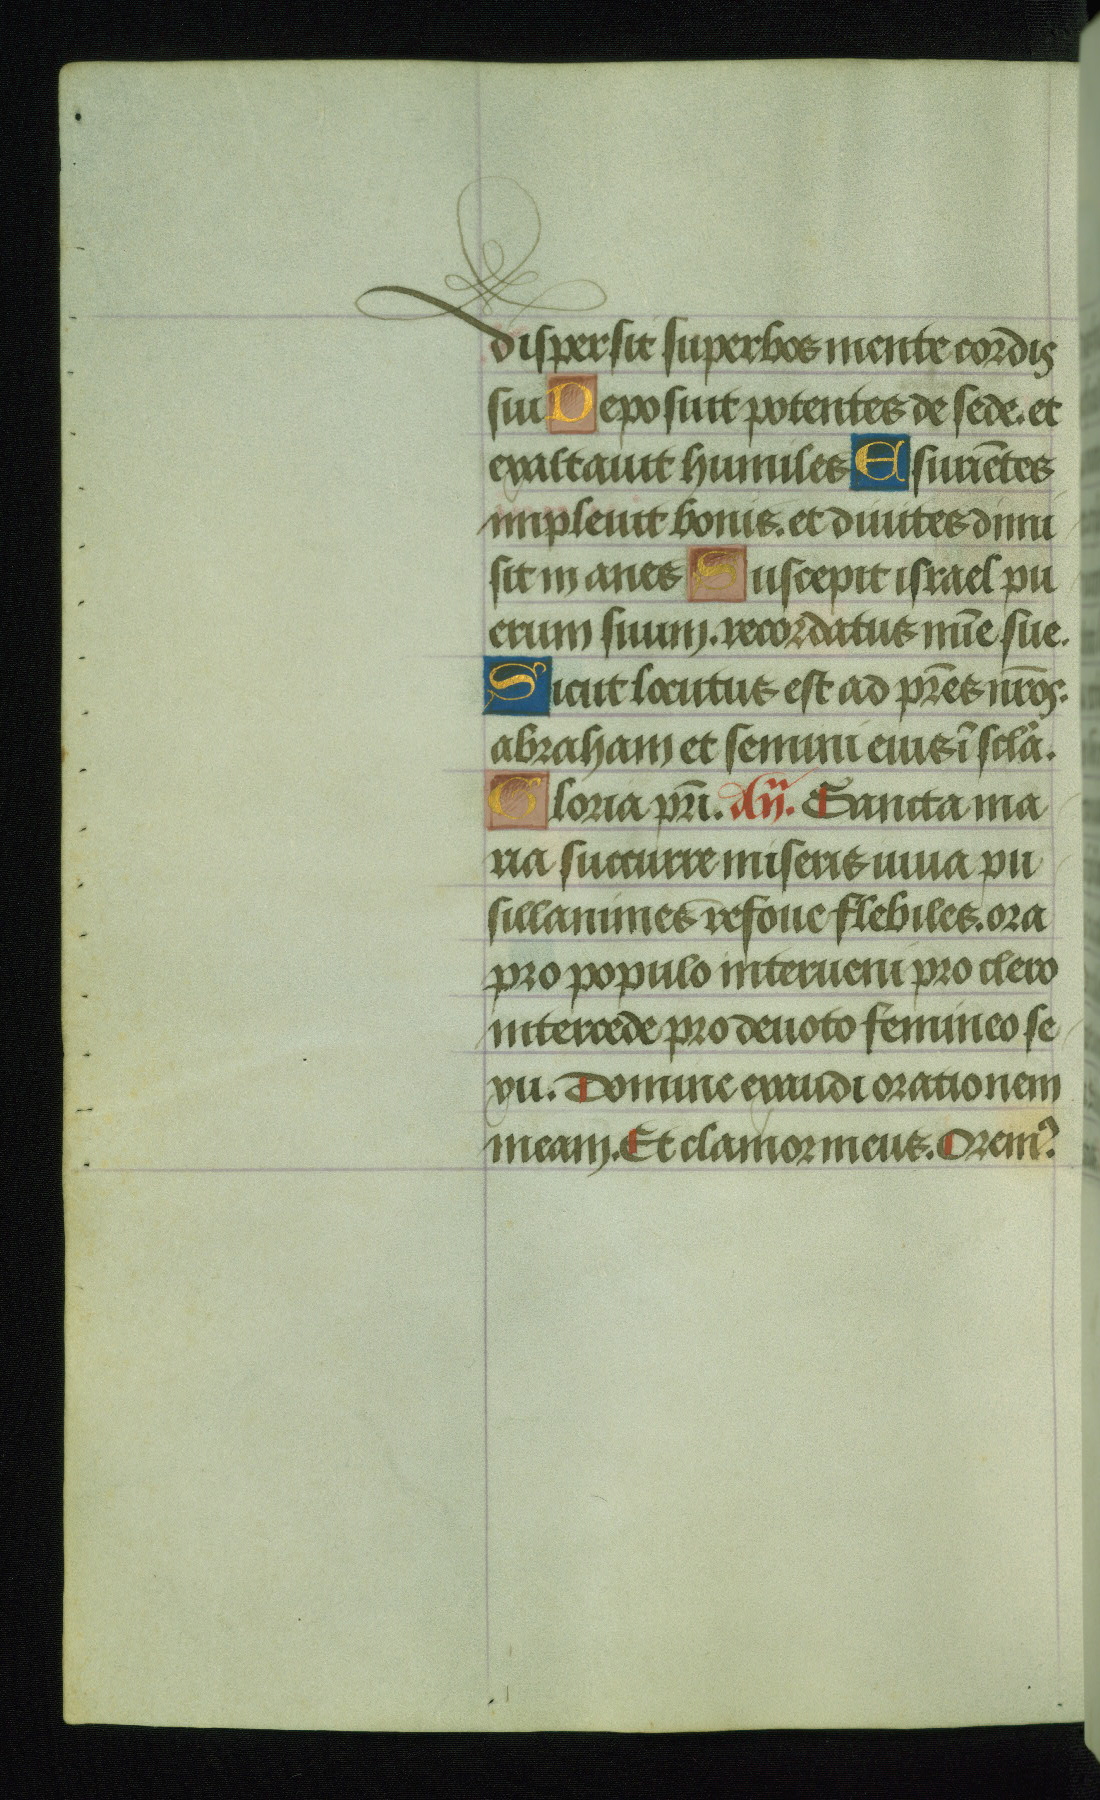 dispersit superbos mente cordis
sui Deposuit potentes de sede. et
exaltauit humiles Esuriētes
impleuit bonis. et diuites dimi
sit in anes Suscepit israel pu
erum suum. recordatus mīe sue.
Sicut locutus est ad pr̄es nr̄os:
abraham et semini eius ī scl̄a.
Gloria pr̄i. Añ. Sancta ma
ria succurre miseris iuua pu
sillanimes refoue flebiles. ora
pro populo interueni pro clero
intercede pro deuoto femineo se
xu. Domine exaudi orationem
meam. Et clamor meus. Oremꝰ.